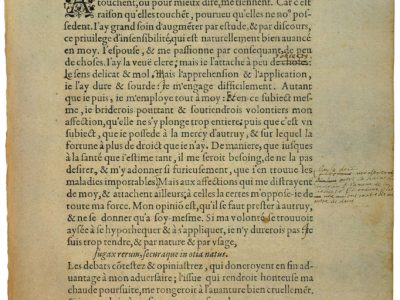 touchent, ou pour mieux dire, me tiennent. Car c'est
raison qu'elles touchēt, pourveu qu'elles ne no⁹ pos-
sedent. J'ay grand soin d'augmēter par estude, & par discours,
ce privilege d'insensibilité, qui est naturellement bien auancé
en moy. J'espouse, & me passionne par consequant, de peu
de choses. J'ay la veuë clere; mais ie l'attache à peu de
le sens delicat & mol, mais l'apprehension & l'application,
ie l'ay dure & sourde: ie m'engage difficilement. Autant
que ie puis, ie m'employe tout à moy: & en ce subiect mes-
me, ie briderois pourtant & soutiendrois volontiers mon
affection, qu'elle ne s'y plonge trop entiere; puis que c'est vn
subiect, que ie possede à la mercy d'autruy, & sur lequel la
fortune à plus de droict que ie n'ay. De maniere, que iusques
à la santé que i'estime tant, il me seroit besoing, de ne la pas
desirer, & m'y adonner si furieusement, que i'en trouue les
maladies importables. Mais aux affections qui me distrayent
de moy, & attachent ailleurs; à celles la certes m'oppose-ie de
toute ma force. Mon opinió est, qu'il se faut prester à autruy,
& ne se donner qu'à soy-mesme. Si ma volonté se trouuoit
aysée à se hypothequer & à s'appliquer, ie n'y durerois pas: Ie
suis trop tendre, & par nature & par vsage,
fugax rerum, securáque in otia natus.
Les debats cótestez & opiniastrez, qui donroyent en fin ad-
uantage à mon aduersaire; l'issue qui rendroit honteuse ma
chaude poursuite, me rongeroit à l'auanture bien cruellemēt.